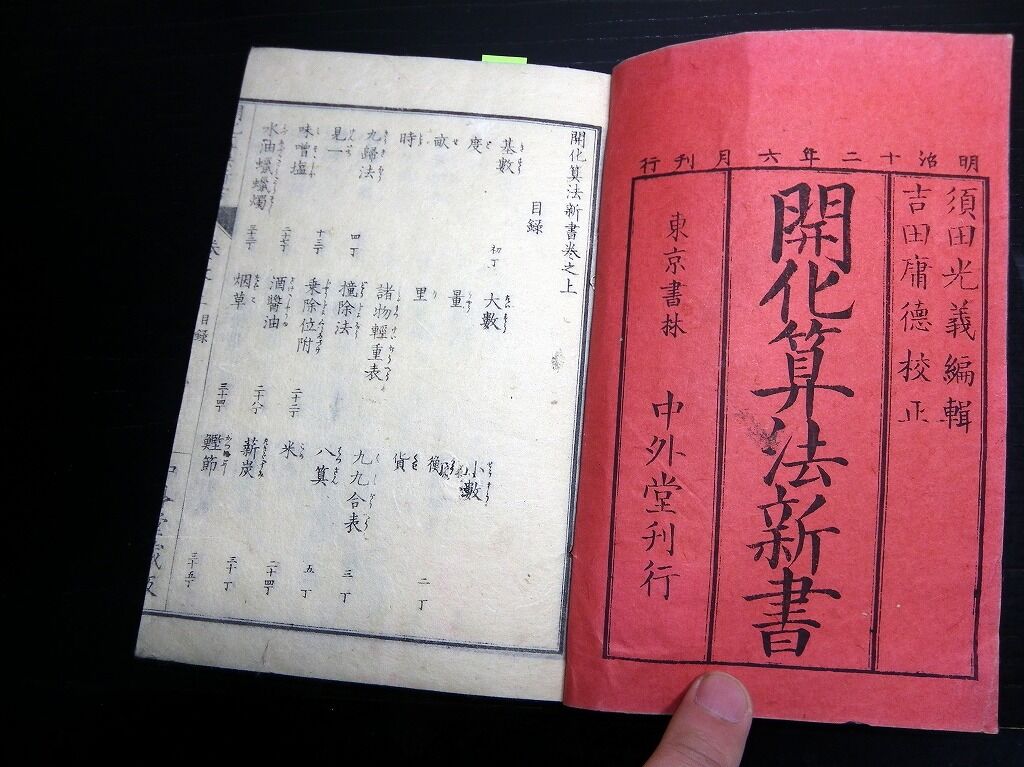 明治十二年六月刊行
須田光義編輯
吉田庸徳校正
開化算法新書
東京書林 中外堂刊行
開化算法新書巻之上
目録
基数 初丁 大数 小数
度 量 衡
畝 里 貨 二丁
時 諸物軽重表 九九合表 三丁
九歸法 四丁 撞除法 八算 五丁
見一 十三丁 乗除位附 二十二丁 米 二十四丁
味噌塩 二十七丁 酒醬油 二十八丁 薪炭 三十丁
水油蠟蠟燭 三十二丁 烟草 三十四丁 鰹節 三十五丁
目録